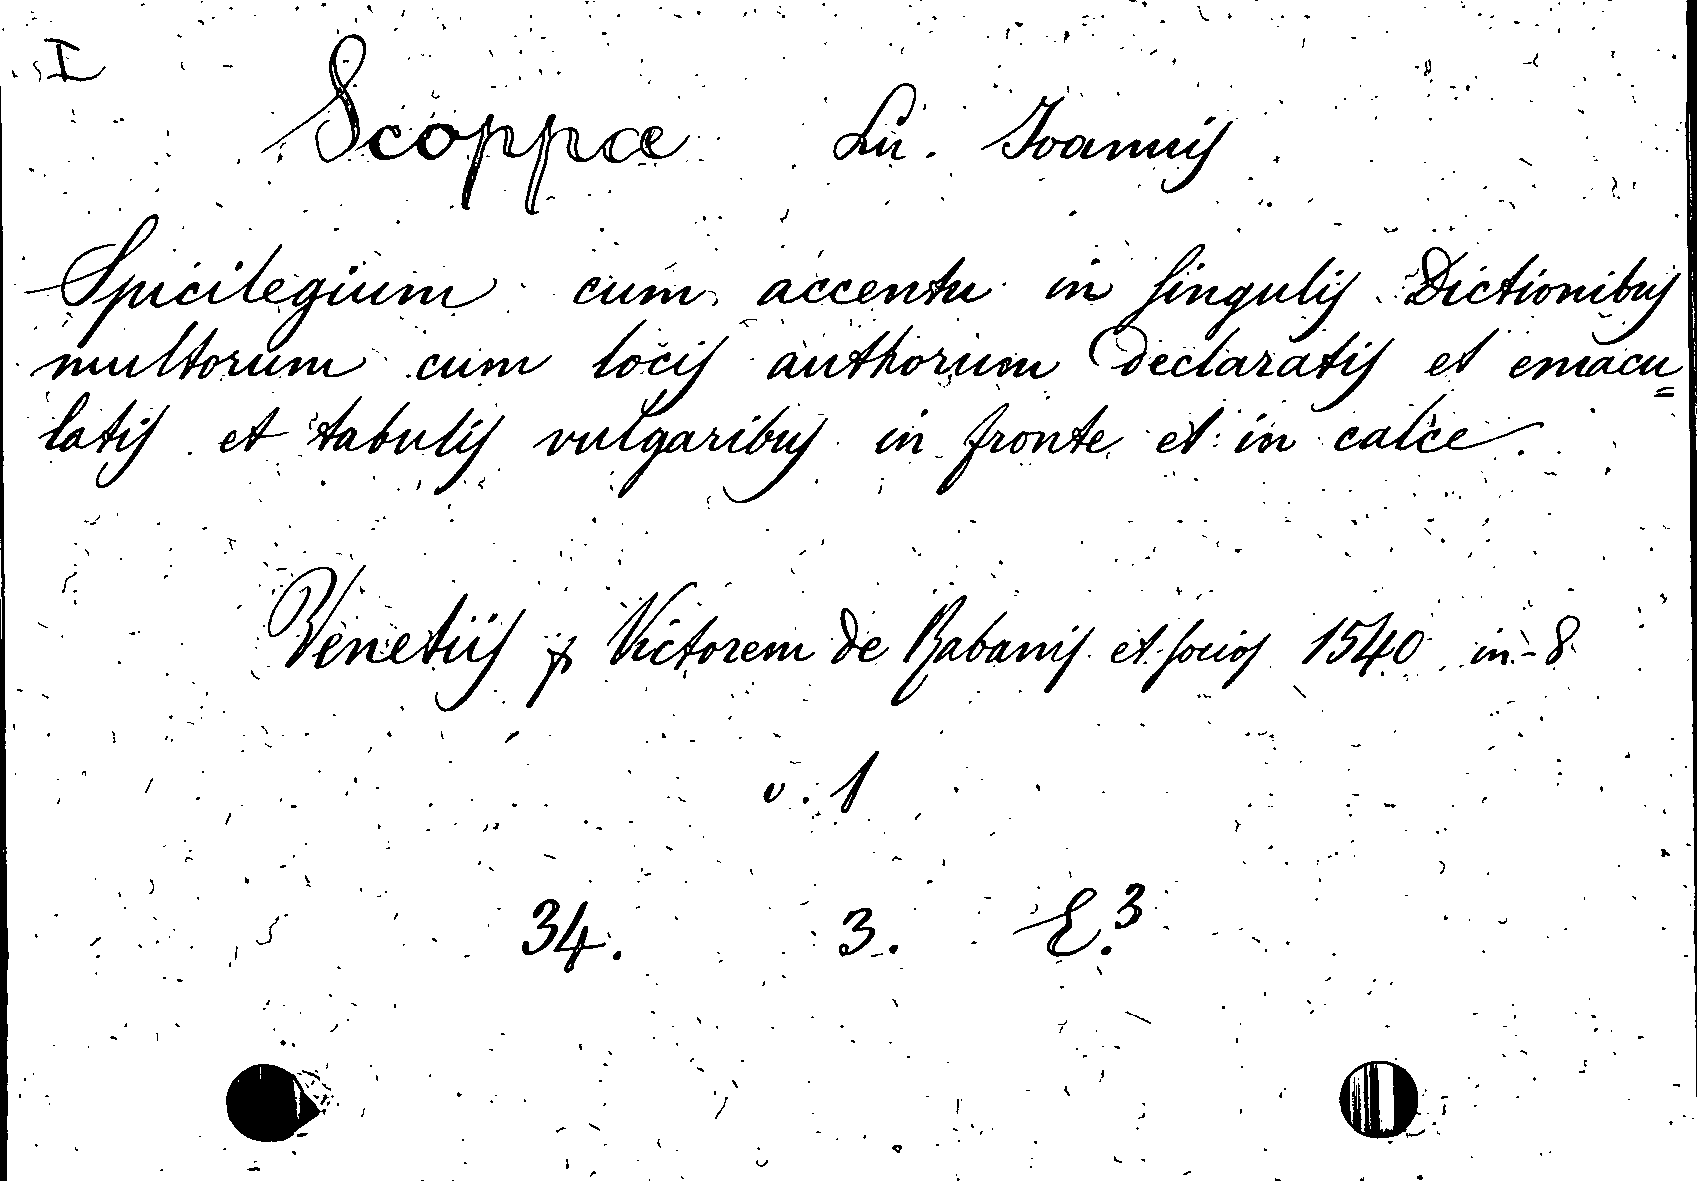 I
Scoppæ Lu. Joannis
Spicilegium cum accentu in singulis Dictionibus
multorum cum locis authorum declaratis et emacu=
latis et tabulis vulgaribus in fronte et in calce.
Venetiis p Victorem de Rabanis et socios 1540 in-8
v. 1
34. 3. E.3